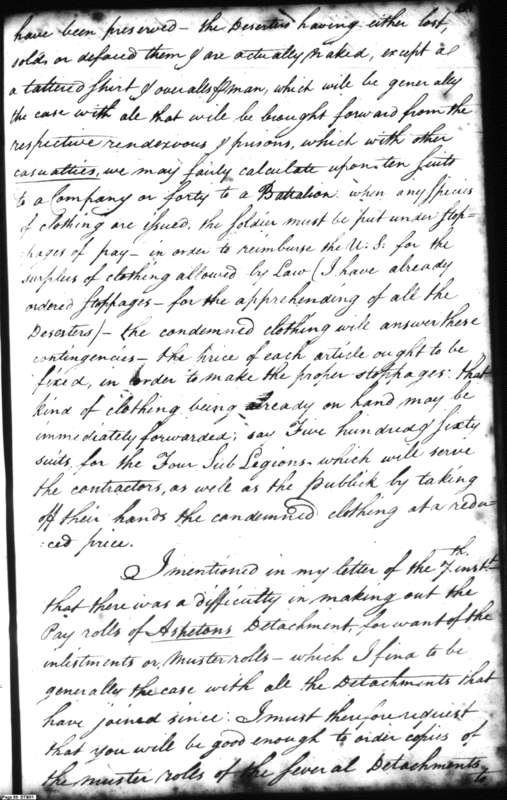 have been preserved – the Deserters having either lost,
sold or defaced them & are actually naked, except
a tattered shirt & overalls man, which will be generally
the case with all that will be brought forward from the
respective rendezvous & prisons, which with other
casualties, we may fairly calculate upon ten suits
to a Company or forty to a Battalion: when any species
of clothing are issued, the soldier must be put under stop=
=pages of pay – in order to reimburse the U. S: for the
surplus of clothing allowed by Law (I have already
ordered stoppages – for the apprehending of all the
Deserters) – the condemned clothing will answer these
contingencies – the price of each article ought to be
fixed, in order to make the proper stoppages: that
kind of clothing being already on hand may be
immediately forwarded; say Five hundred & sixty
suits, for the Four Sub Legions – which will serve
the contractors, as well as the Publick by taking
off their hands the condemned clothing at a redu=
:ced price.
I mentioned in my letter of the 7th. inst
that there was a difficulty in making out the
Pay rolls of Ashetons Detachment, for want of the
inlistments or Muster rolls – which I find to be
generally the case with all the Detachments that
have joined since: I must therefore request
that you will be good enough to order copies of
the muster rolls of the several Detachments
to